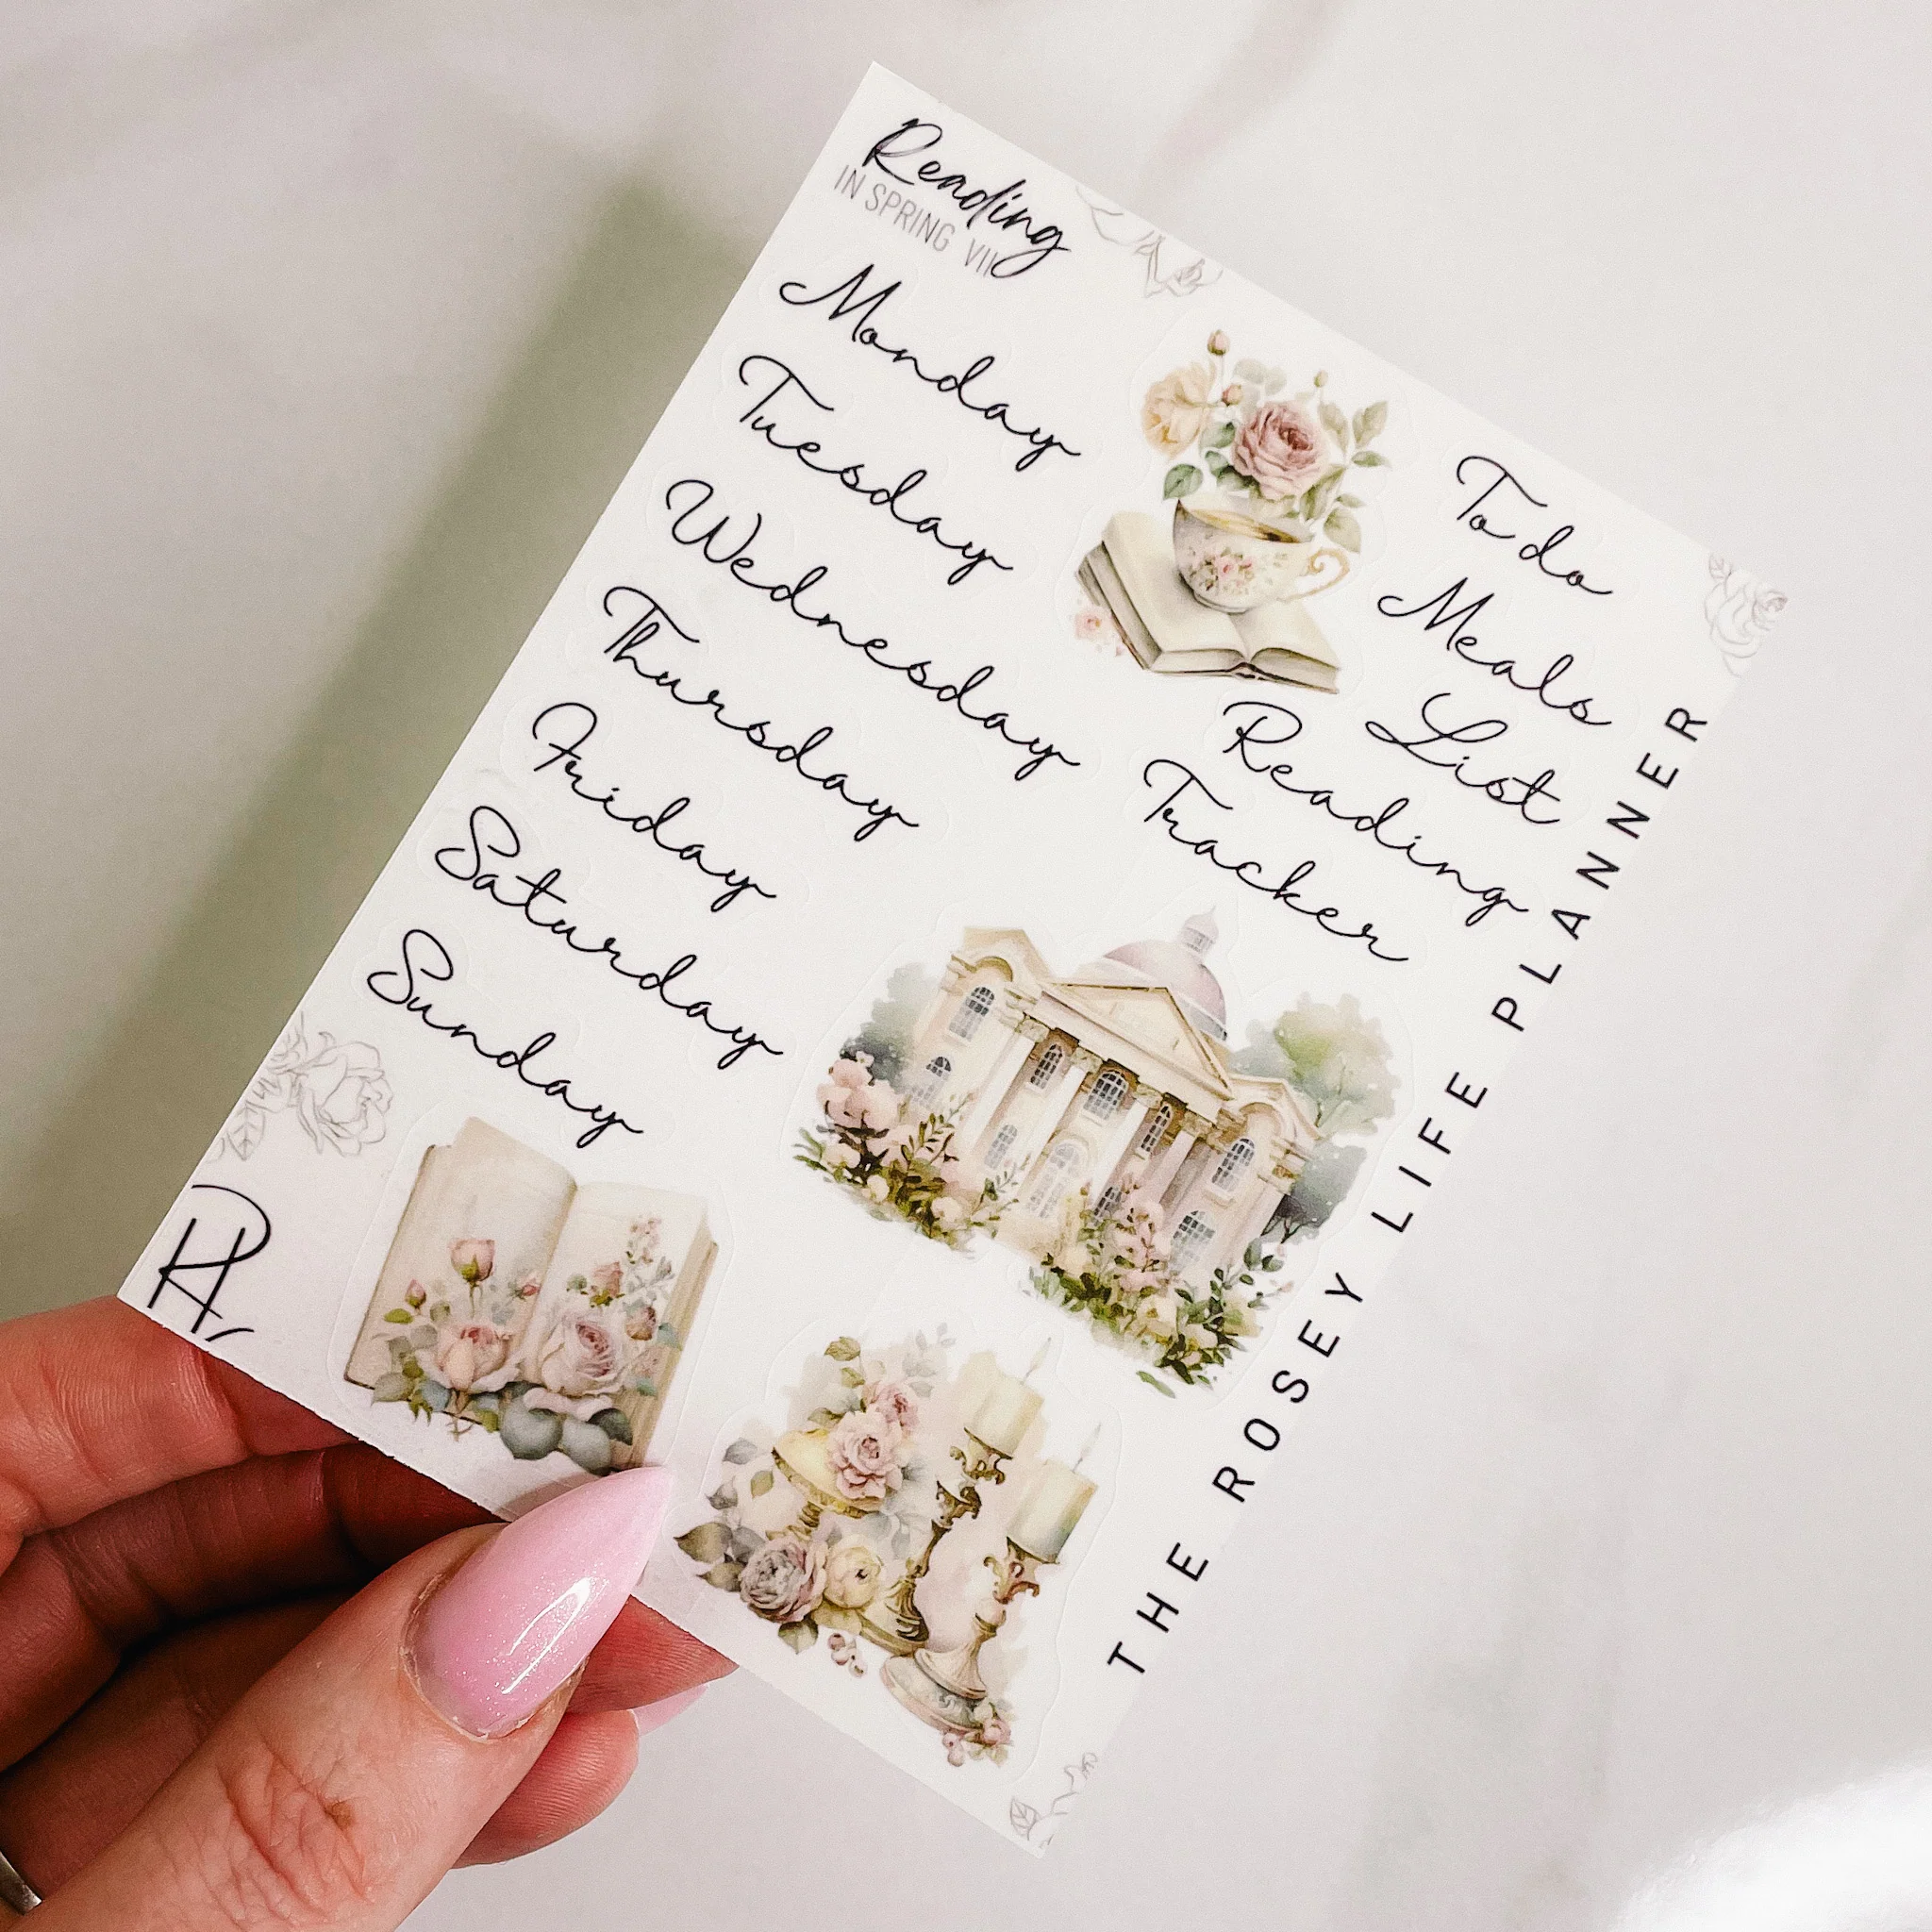 Reading
IN SPRING VII
Monday
Tuesday
Wednesday
Thursday
Friday
Saturday
Sunday
To do
Meals
List
Reading
Tracker
THE ROSEY LIFE PLANNER